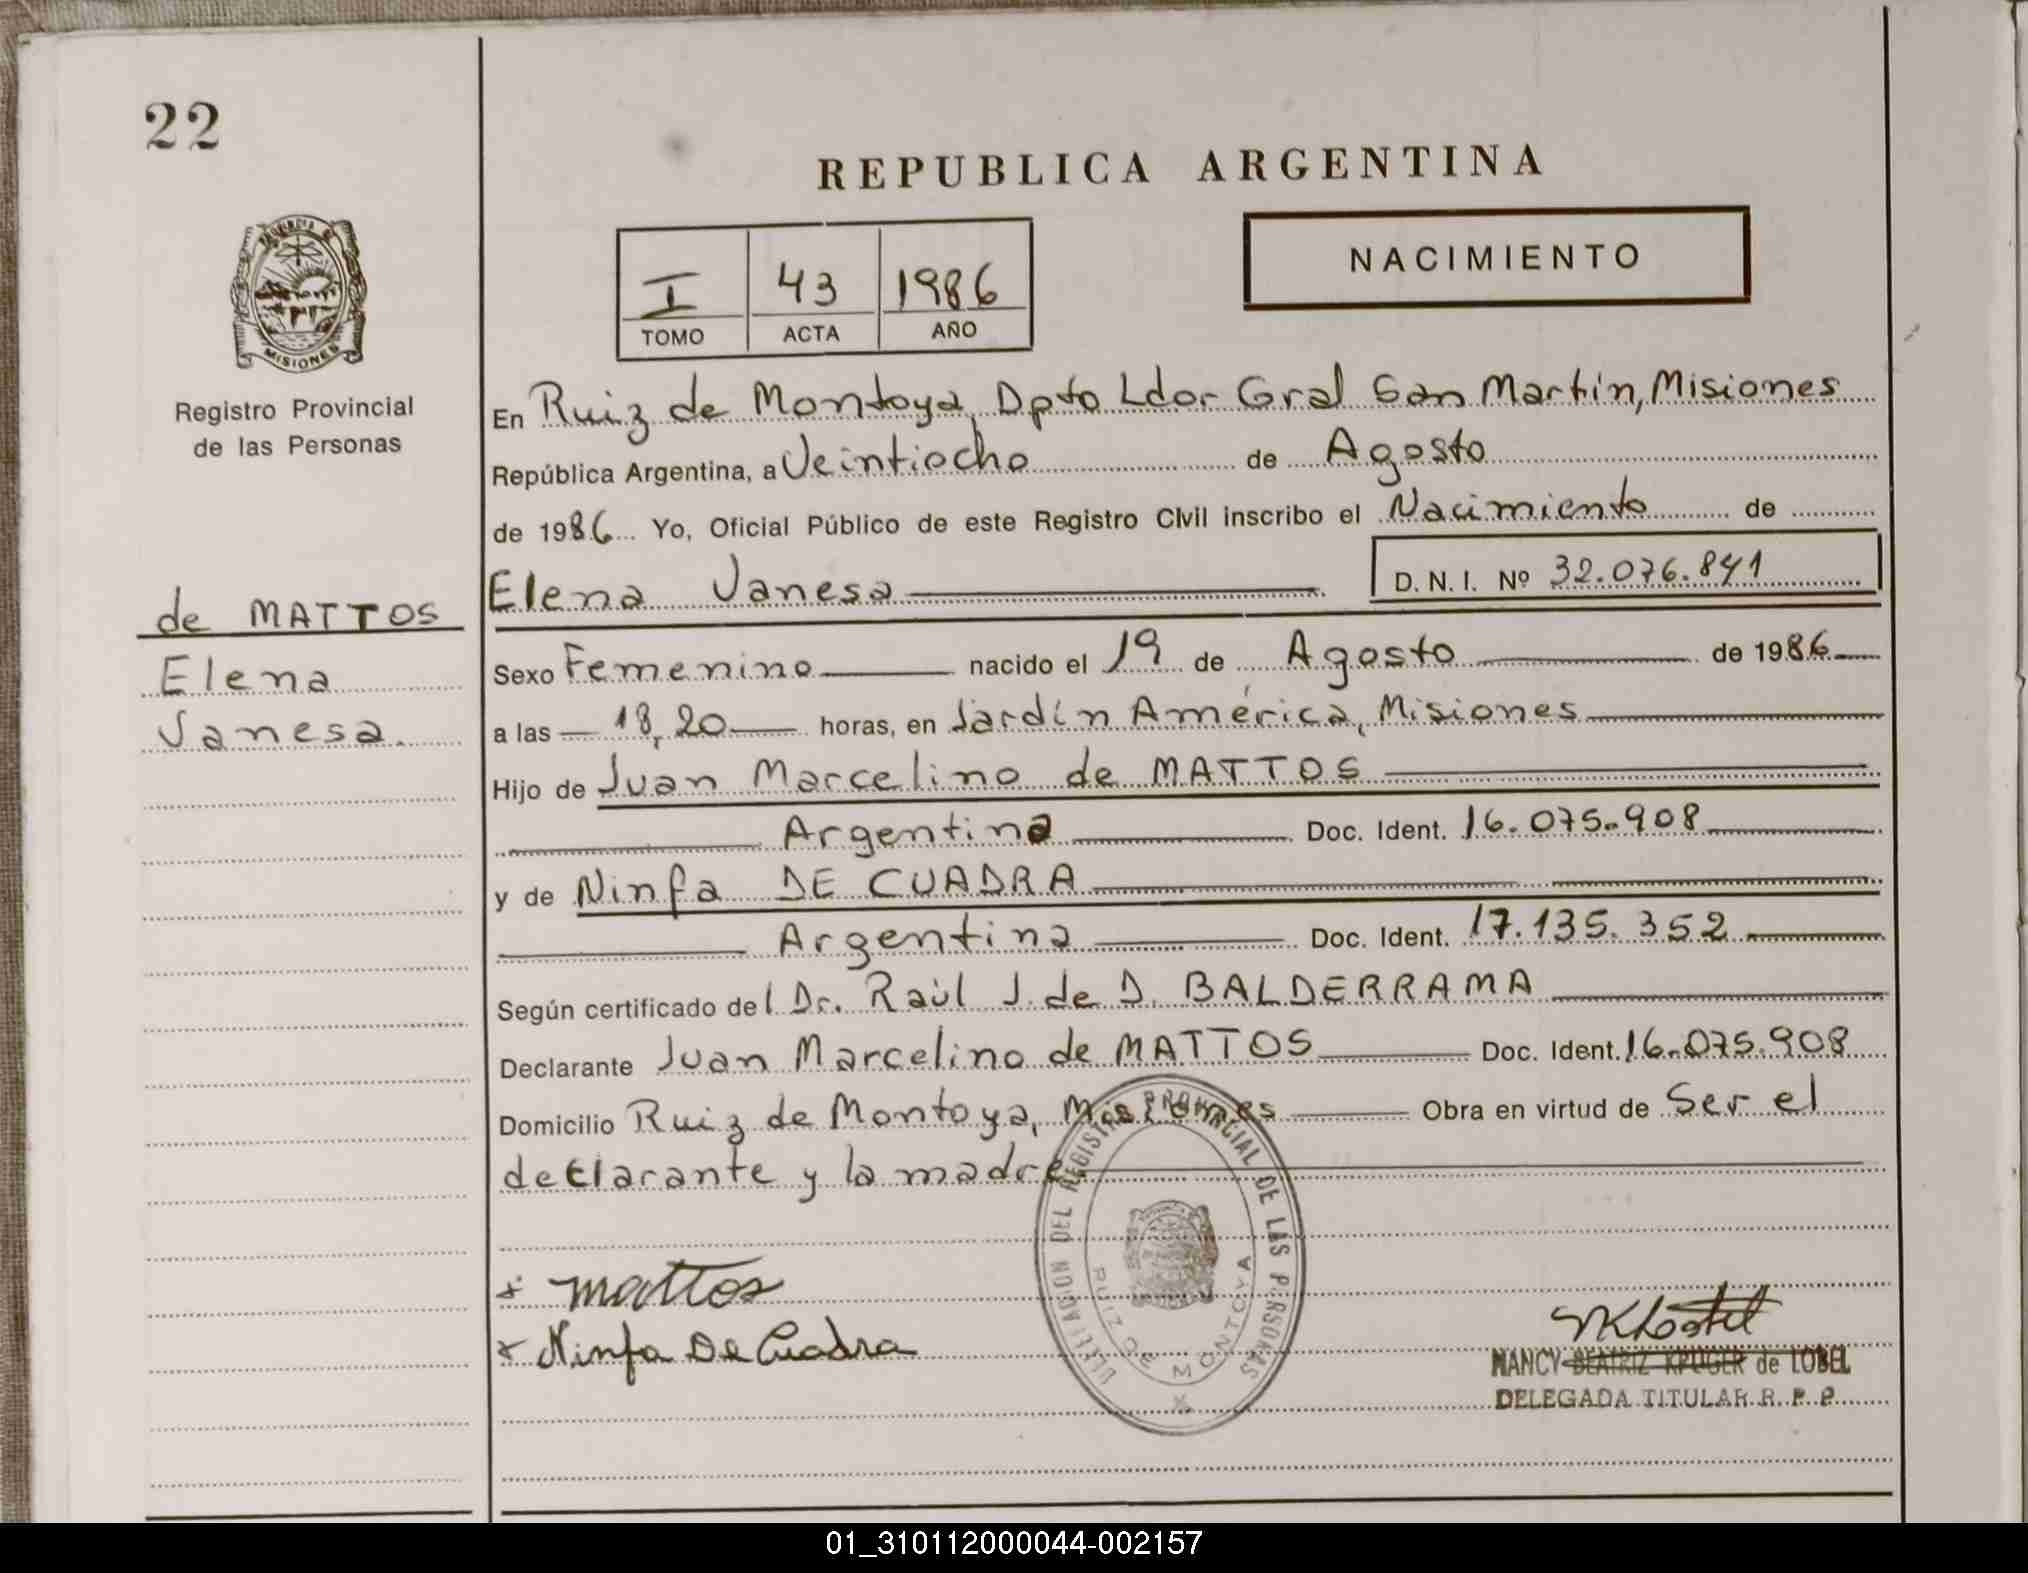 22
REPUBLICA ARGENTINA
NACIMIENTO
I 43 1986
TOMO ACTA AÑO
MISIONES
Registro Provincial
de las Personas
de MATTOS
Elena
Vanesa.
En Ruiz de Montoya, Dpto Ldor Gral San Martín, Misiones
República Argentina, a Veintiocho de Agosto
de 1986 Yo, Oficial Público de este Registro Civil inscribo el Nacimiento de
Elena Vanesa D.N.I. Nº 32.076.841
Sexo Femenino nacido el 19 de Agosto de 1986
a las 18,20 horas, en Jardín América, Misiones
Hijo de Juan Marcelino de MATTOS
Argentina Doc. Ident. 16.075.908
y de Ninfa DE CUADRA
Argentina Doc. Ident. 17.135.352
Según certificado del Dr. Raúl J. de D. BALDERRAMA
Declarante Juan Marcelino de MATTOS Doc. Ident. 16.075.908
Domicilio Ruiz de Montoya, Misiones Obra en virtud de Ser el
declarante y la madre.
DELEGACION DEL REGISTRO PROVINCIAL DE LAS PERSONAS
RUIZ DE MONTOYA
x Mattos
x Ninfa De Cuadra
NANCY BEATRIZ KRUGER de LOBEL
DELEGADA TITULAR R. P. P.
01_310112000044-002157